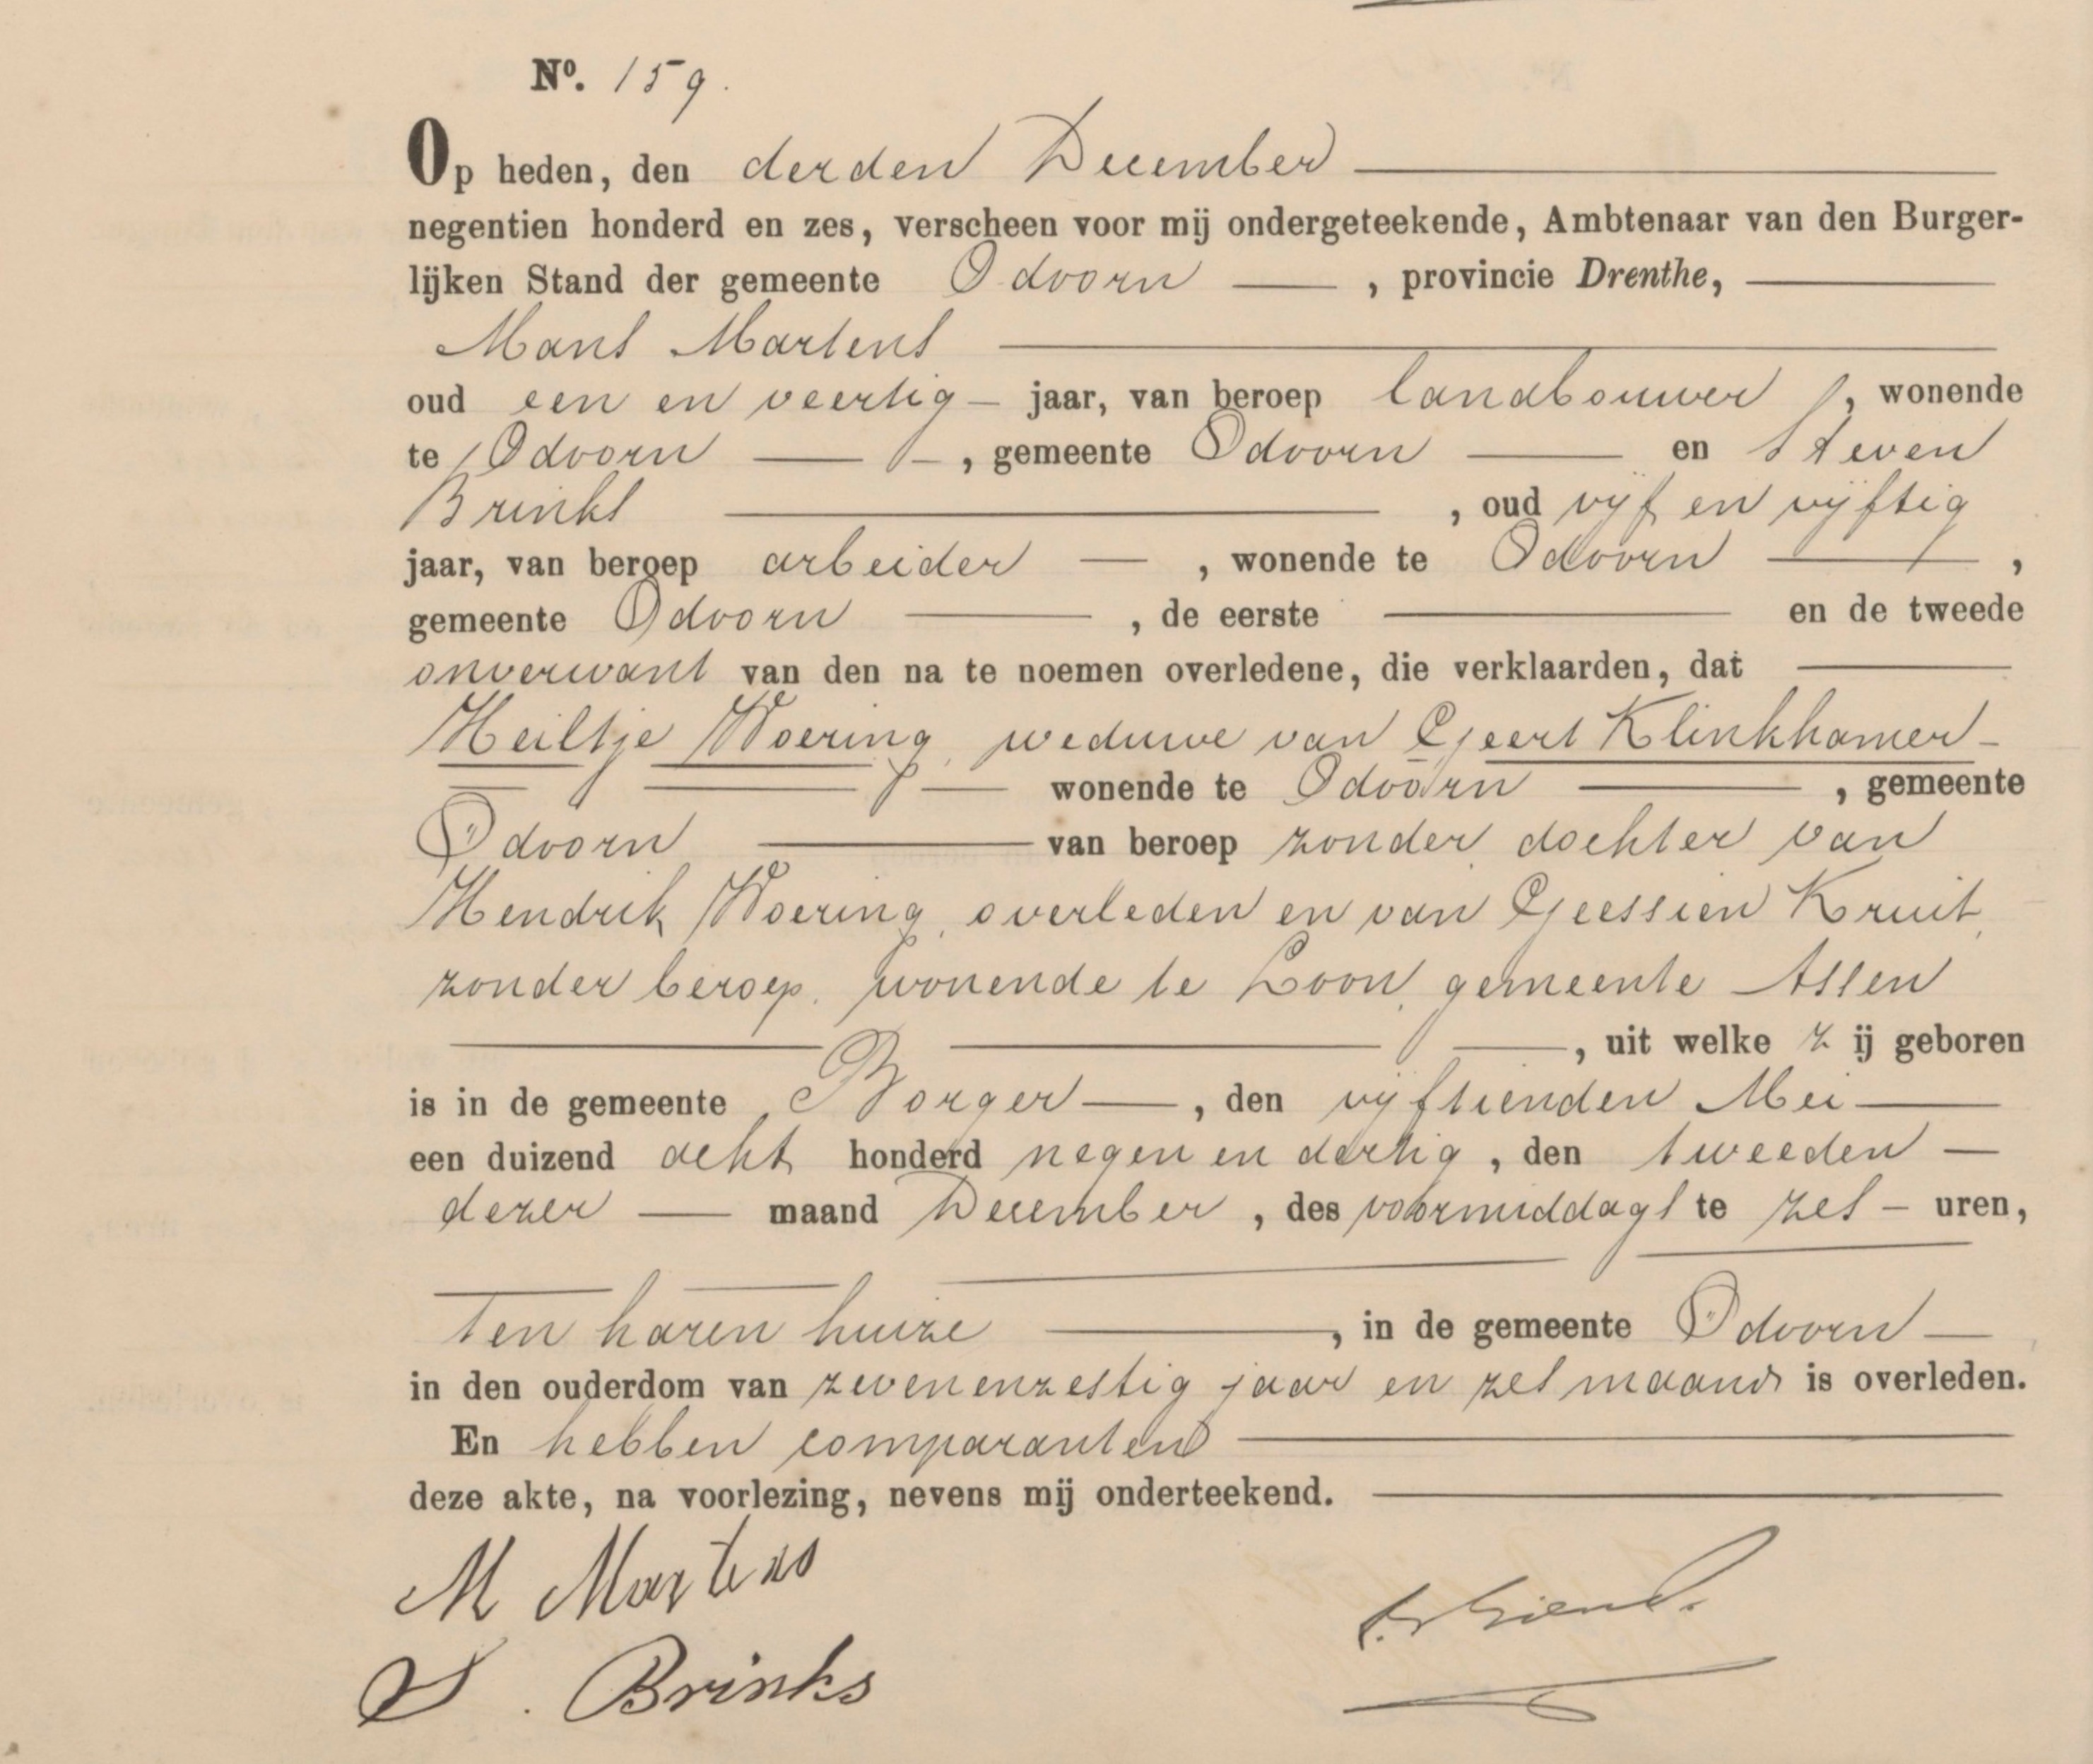 Nº. 159.
Op heden, den derden December
negentien honderd en zes, verscheen voor mij ondergeteekende, Ambtenaar van den Burger-
lijken Stand der gemeente Odoorn, provincie Drenthe,
Mans Martens
oud een en veertig jaar, van beroep landbouwer, wonende
te Odoorn, gemeente Odoorn en Steven
Brinks, oud vijf en vijftig
jaar, van beroep arbeider, wonende te Odoorn,
gemeente Odoorn, de eerste en de tweede
onverwant van den na te noemen overledene, die verklaarden, dat
Heiltje Woering, weduwe van Geert Klinkhamer
wonende te Odoorn, gemeente
Odoorn van beroep zonder dochter van
Hendrik Woering, overleden en van Geessien Kruit,
zonder beroep, wonende te Loon, gemeente Assen
, uit welke zij geboren
is in de gemeente Borger, den vijftienden Mei
een duizend acht honderd negen en dertig, den tweeden
dezer maand December, des voormiddags te zes uren,
ten haren huize, in de gemeente Odoorn
in den ouderdom van zevenenzestig jaar en zes maand is overleden.
En hebben comparanten
deze akte, na voorlezing, nevens mij onderteekend.
M Martens
S. Brinks